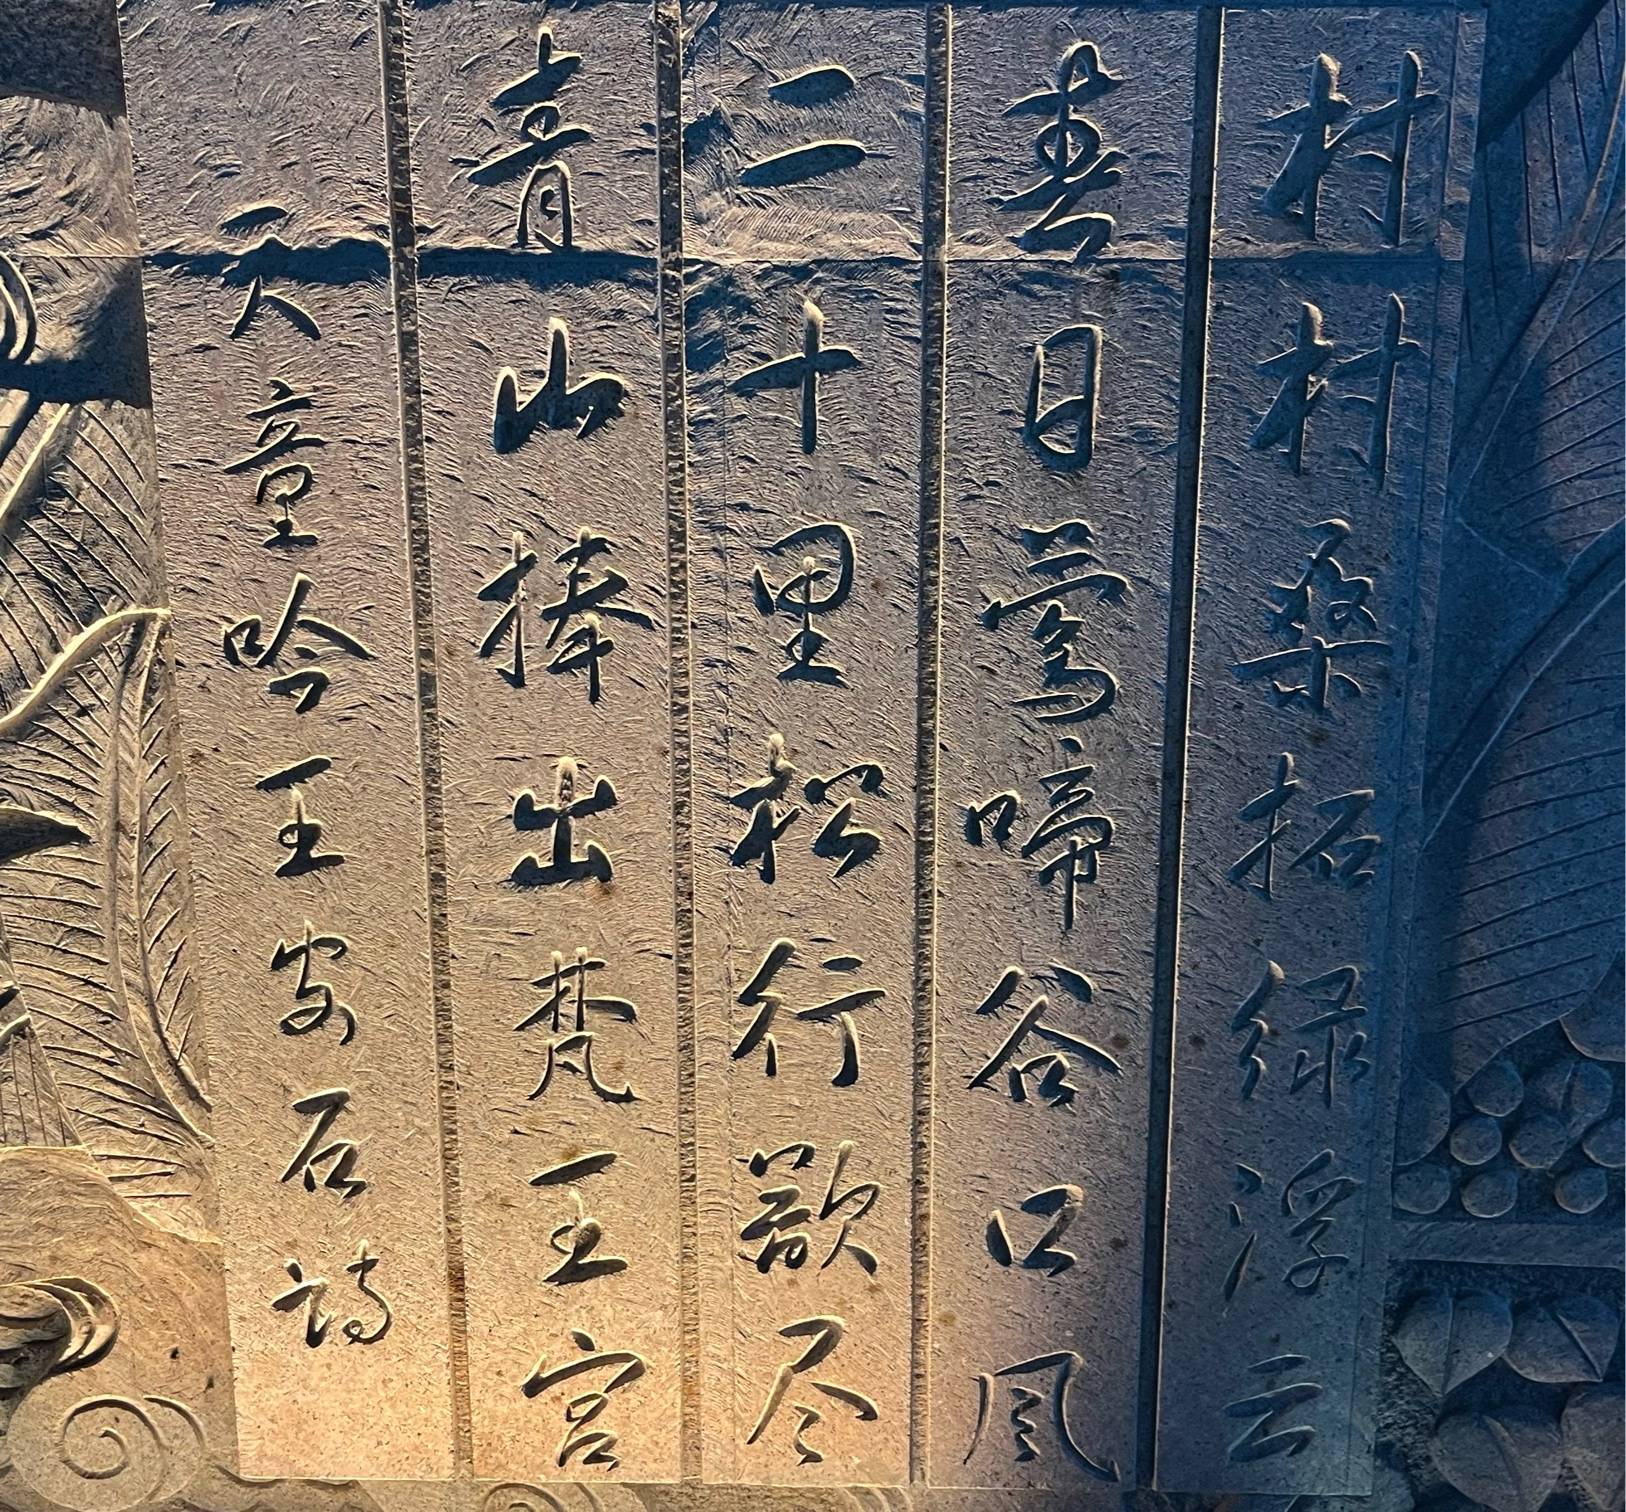 村村桑拓绿浮云
春日莺啼谷口风
二十里松行欲尽
青山捧出梵王宫
天童吟王安石诗